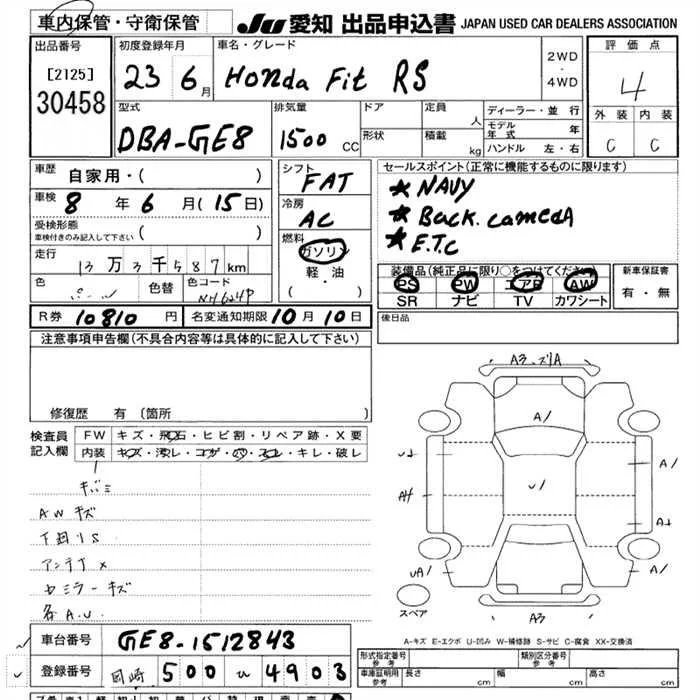 車内保管・守衛保管
JU 愛知 出品申込書 JAPAN USED CAR DEALERS ASSOCIATION
出品番号
[2125]
30458
初度登録年月
23 6月
車名・グレード
Honda Fit RS
2WD
・
4WD
評価点
4
外装 内装
C C
型式
DBA-GE8
排気量
1500 CC
ドア
形状
定員
人
積載
kg
ディーラー・並行
モデル年式 年
ハンドル 左・右
車歴
自家用・( )
車検 8年6月(15日)
受検形態
車検付きのみ記入して下さい ( )
走行
13万3千587km
色
パール
色替
色コード
NH624P
シフト
FAT
冷房
AC
燃料
ガソリン
軽・油
( ・ )
セールスポイント(正常に機能するものに限ります)
★ NAVY
★ Back. camera
★ E.T.C
装備品(純正品に限り○をつけてください)
PS PW エアB AW
SR ナビ TV カワシート
新車保証書
有・無
R券 10810円 名変通知期限 10月10日
後日品
注意事項申告欄(不具合内容等は具体的に記入して下さい)
修復歴 有(箇所
検査員記入欄
FW キズ・飛石・ヒビ割・リペア跡・X要
内装 キズ・汚レ・コゲ・穴・スレ・キレ・破レ
AWキズ
下回りS
アンテナ×
セミラーキズ
各A.U.
A3
A/
A/
A/
A3
スペア
A-キズ E-エクボ U-凹み W-補修跡 S-サビ C-腐食 XX-交換済
車台番号 GE8-1512843
登録番号 岡崎 500 4903
形式指定番号
参考
類別区分番号
参考
車庫証明用
参考
長さ cm
幅 cm
高さ cm